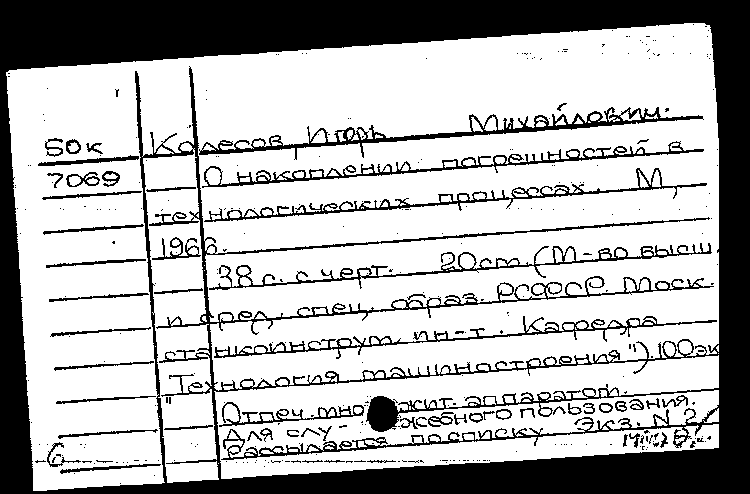 50к Колесов, Игорь Михайлович.
7069 О накоплении погрешностей в
технологических процессах. М,
1966.
38 с. с черт. 20см. (М-во высш.
и сред. спец. образ. РСФСР. Моск.
станкоинструм. ин-т. Кафедра
"Технология машиностроения"). 100эк
Отпеч. множит. аппаратом.
Для служебного пользования.
Рассылается по списку Экз. N 2
6